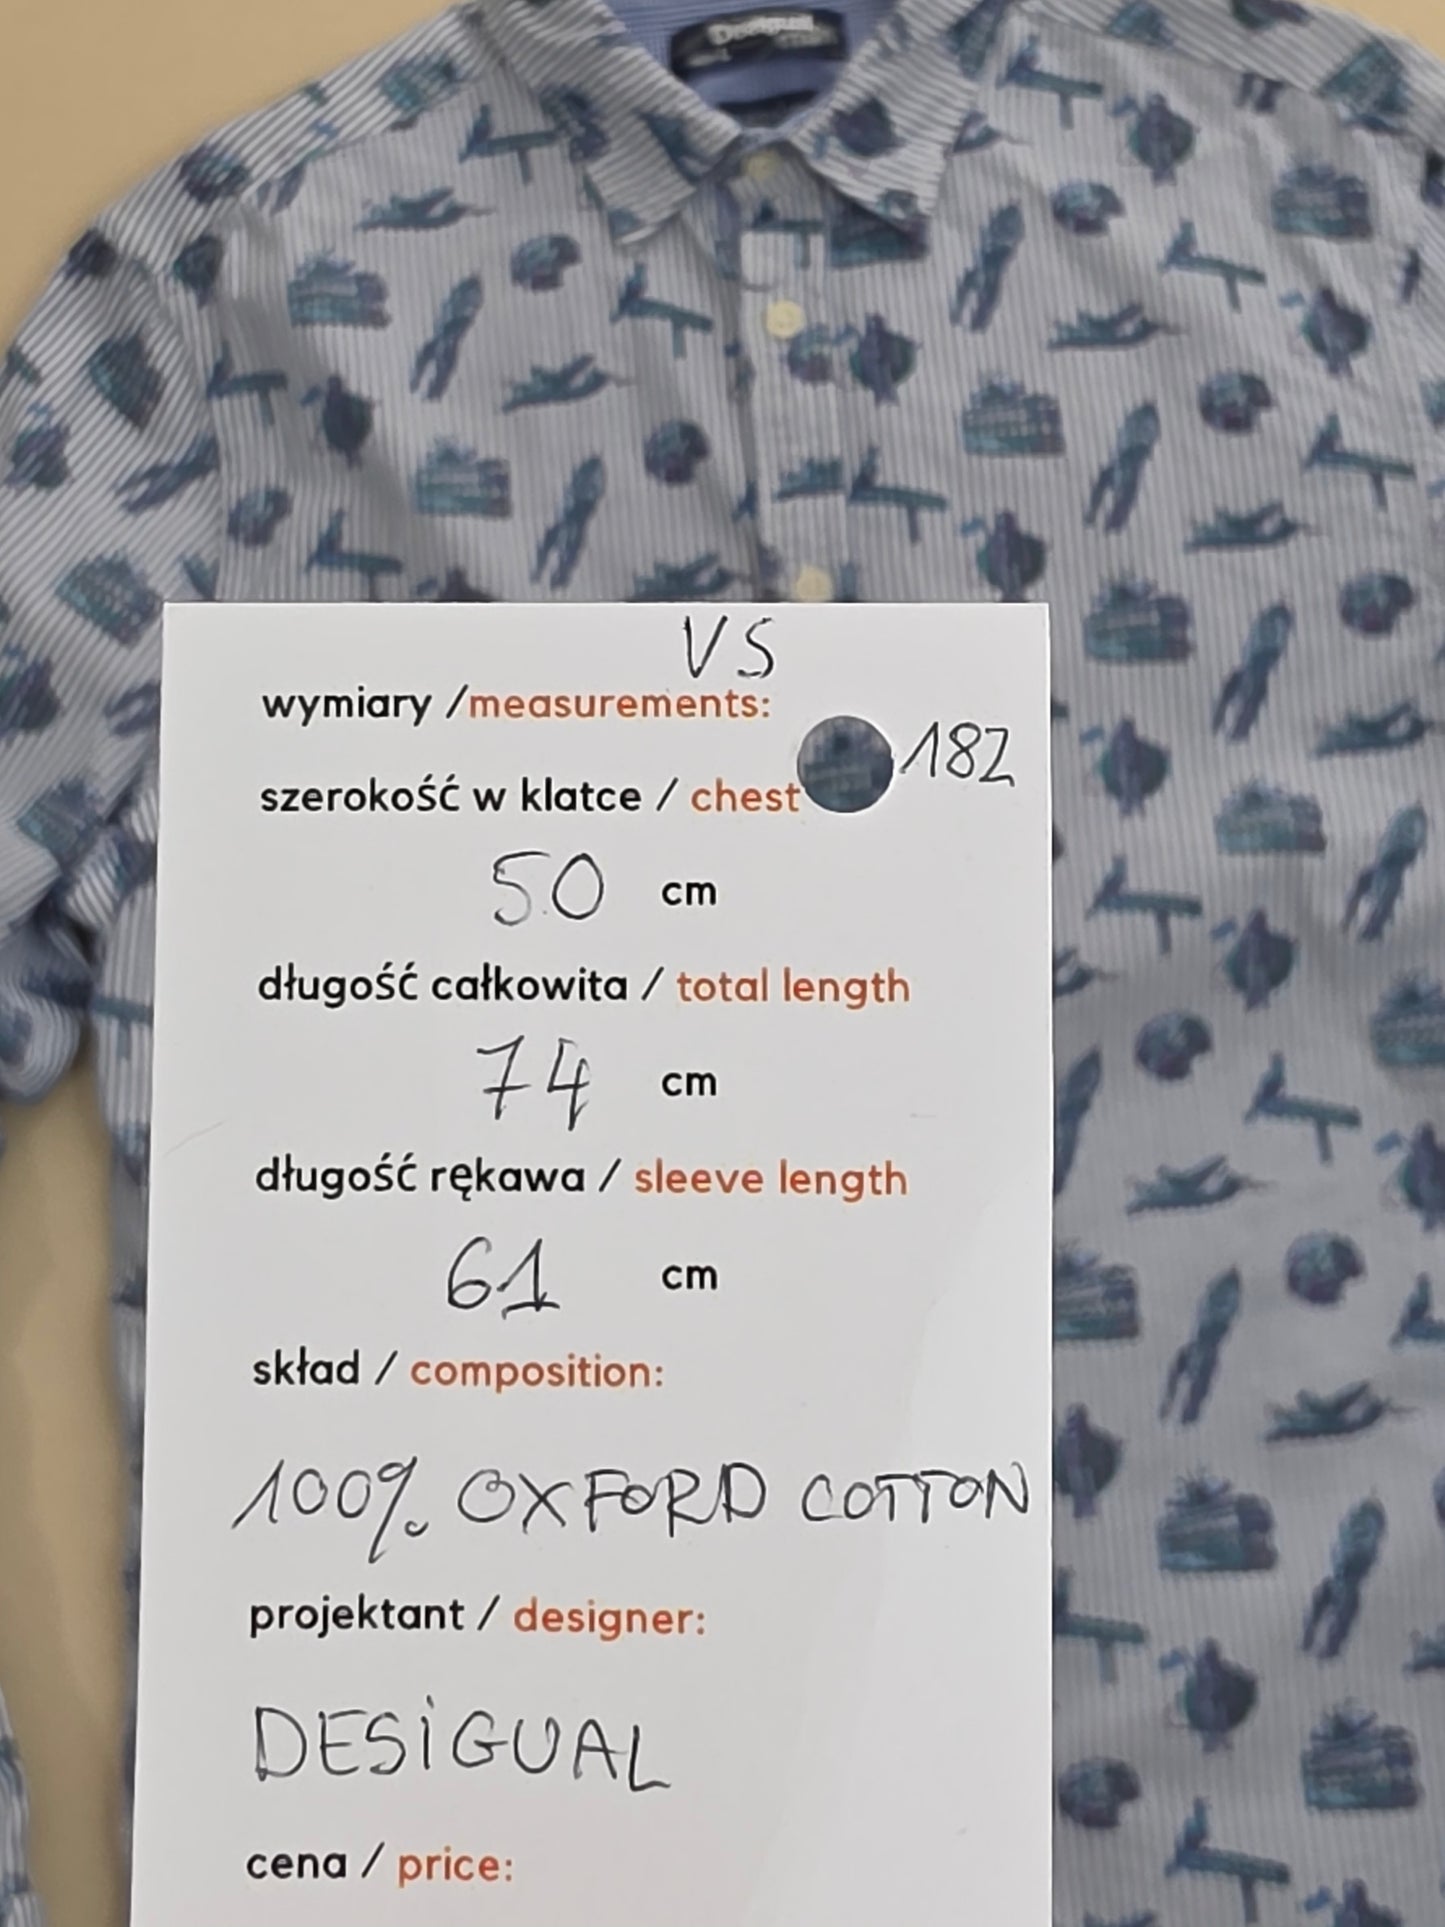 Desigual
VS
wymiary / measurements:
182
szerokość w klatce / chest
50 cm
długość całkowita / total length
74 cm
długość rękawa / sleeve length
61 cm
skład / composition:
100% OXFORD COTTON
projektant / designer:
DESiGUAL
cena / price: